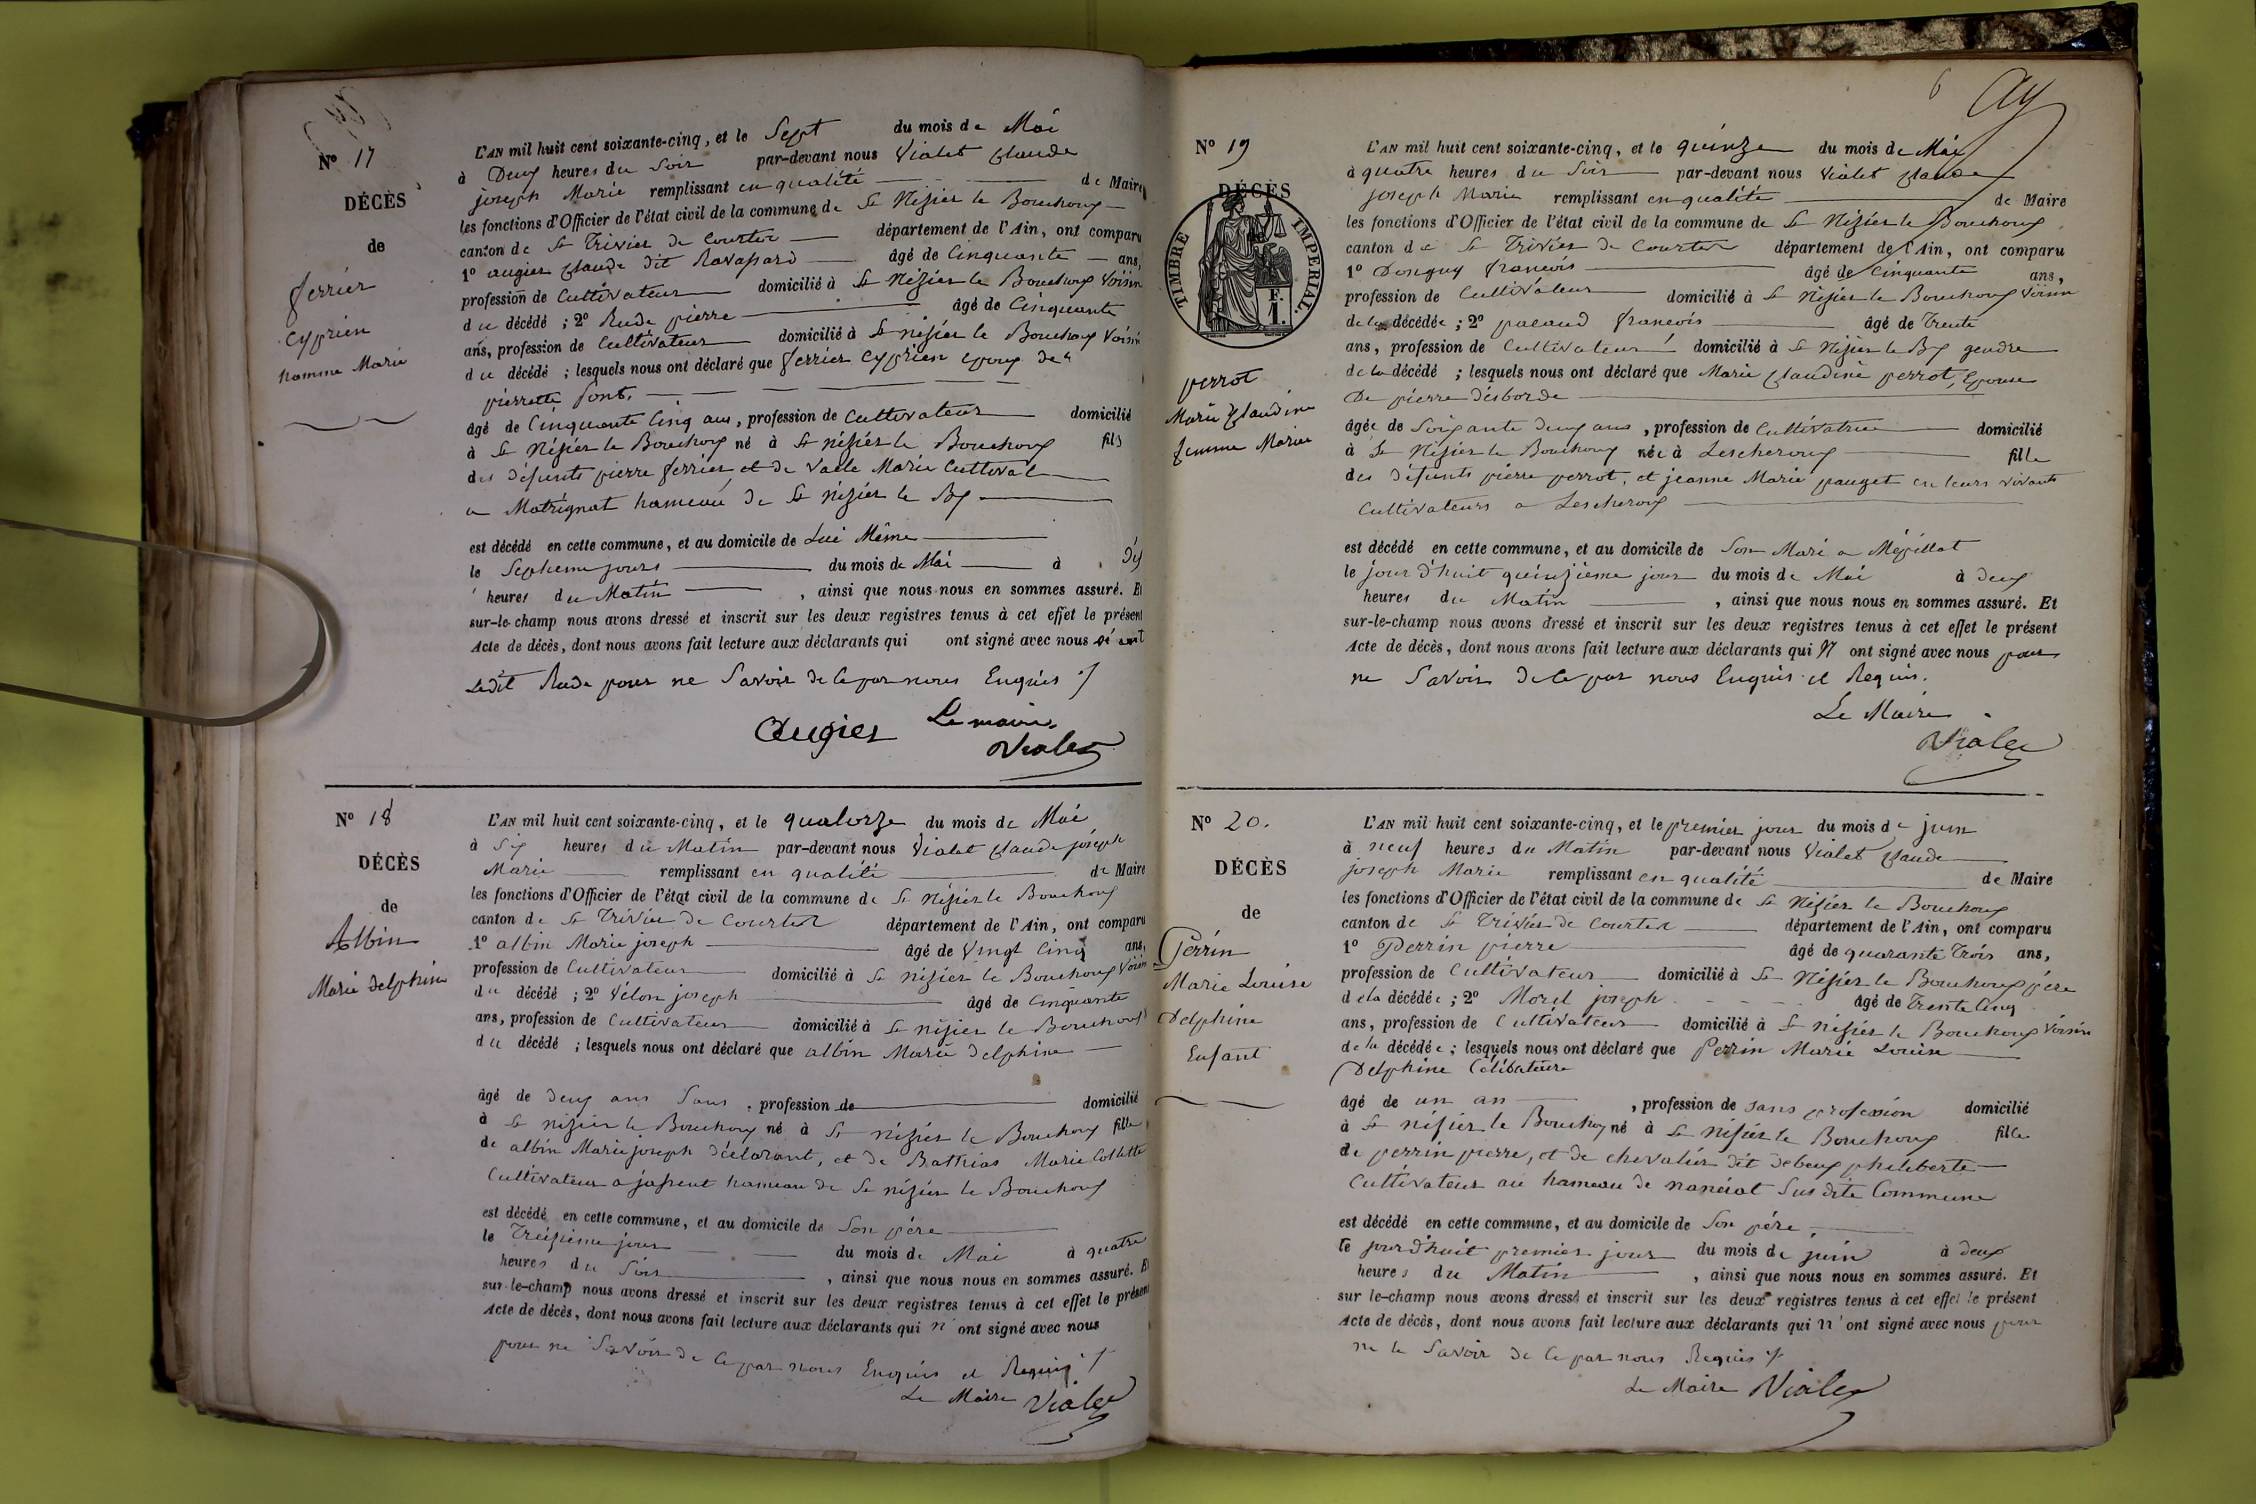 Nº 17
DÉCÈS
de
ferrier
Cyprien
homme Marié
L'AN mil huit cent soixante-cinq, et le Sept du mois de Mai
à Deux heures du Soir par-devant nous Vialet Claude
joseph Marie remplissant en qualité de Maire
les fonctions d'Officier de l'état civil de la commune de St Nizier le Bouchoux
canton de St Trivier de Courtes département de l'Ain, ont comparu
1º augier Claude dit Ravassard âgé de Cinquante ans,
profession de Cultivateur domicilié à St Nizier le Bouchoux Voisin
du décédé ; 2º Rude pierre âgé de Cinquante
ans, profession de Cultivateur domicilié à St nizier le Bouchoux Voisin
du décédé ; lesquels nous ont déclaré que ferrier Cyprien Epoux de
pierrette font,
âgé de Cinquante Cinq ans, profession de Cultivateur domicilié
à St Nizier le Bouchoux né à St nizier le Bouchoux fils
des défunts pierre ferrier, et de Marie
a Matrignat hameau de St nizier le Bx
est décédé en cette commune, et au domicile de Lui Même
le Septieme jours du mois de Mai à Dix
heures du Matin, ainsi que nous nous en sommes assuré. Et
sur-le-champ nous avons dressé et inscrit sur les deux registres tenus à cet effet le présent
Acte de décès, dont nous avons fait lecture aux déclarants qui ont signé avec nous
Ledit Rude pour ne Savoir de Ce par nous Enquis ./
Augier Le maire,
Vialet
Nº 18
DÉCÈS
de
Albin
Marie delphine
L'AN mil huit cent soixante-cinq, et le quatorze du mois de Mai
à Six heures du Matin par-devant nous Vialet Claude joseph
Marie remplissant en qualité de Maire
les fonctions d'Officier de l'état civil de la commune de St Nizier le Bouchoux
canton de St Trivier de Courtes département de l'Ain, ont comparu
1º albin Marie joseph âgé de Vingt Cinq ans,
profession de Cultivateur domicilié à St nizier le Bouchoux Voisin
du décédé ; 2º Vélon joseph âgé de Cinquante
ans, profession de Cultivateur domicilié à St nizier le Bouchoux
du décédé ; lesquels nous ont déclaré que albin Marie delphine
âgé de deux ans Sans, profession de domicilié
à St nizier le Bouchoux né à St nizier le Bouchoux fille
de albin Marie joseph déclarant, et de Bathias Marie Collette
Cultivateur a jassent hameau de St nizier le Bouchoux
est décédé en cette commune, et au domicile de Son père
le Treizieme jour du mois de Mai à quatre
heures du Soir, ainsi que nous nous en sommes assuré. Et
sur-le-champ nous avons dressé et inscrit sur les deux registres tenus à cet effet le présent
Acte de décès, dont nous avons fait lecture aux déclarants qui n'ont signé avec nous
pour ne Savoir de Ce par nous Enquis et Requis ./
Le Maire Vialet
6
Nº 19
DÉCÈS
TIMBRE IMPÉRIAL.
1 F.
perrot
Marie Claudine
femme Mariée
L'AN mil huit cent soixante-cinq, et le quinze du mois de Mai
à quatre heures du Soir par-devant nous Vialet Claude
joseph Marie remplissant en qualité de Maire
les fonctions d'Officier de l'état civil de la commune de St Nizier le Bouchoux
canton de St Trivier de Courtes département de l'Ain, ont comparu
1º Donguy francois âgé de Cinquante ans,
profession de Cultivateur domicilié à St nizier le Bouchoux Voisin
de la décédée ; 2º pacaud francois âgé de Trente
ans, profession de Cultivateur domicilié à St Nizier le Bx gendre
de la décédé ; lesquels nous ont déclaré que Marie Claudine perrot, Epouse
De pierre désborde
âgée de Soixante deux ans, profession de Cultivatrice domicilié
à St Nizier le Bouchoux née à Lescheroux fille
des défunts pierre perrot, et jeanne Marie pauget en leurs vivants
Cultivateurs a Lescheroux
est décédé en cette commune, et au domicile de Son Mari a Mépillat
le jour d'huit quinzieme jour du mois de Mai à deux
heures du Matin, ainsi que nous nous en sommes assuré. Et
sur-le-champ nous avons dressé et inscrit sur les deux registres tenus à cet effet le présent
Acte de décès, dont nous avons fait lecture aux déclarants qui N' ont signé avec nous pour
ne Savoir de Ce par nous Enquis et Requis.
Le Maire
Vialet
Nº 20.
DÉCÈS
de
Perrin
Marie Louise
Delphine
Enfant
L'AN mil huit cent soixante-cinq, et le premier jour du mois de juin
à neuf heures du Matin par-devant nous Vialet Claude
joseph Marie remplissant en qualité de Maire
les fonctions d'Officier de l'état civil de la commune de St Nizier le Bouchoux
canton de St Trivier de Courtes département de l'Ain, ont comparu
1º Perrin pierre âgé de quarante Trois ans,
profession de Cultivateur domicilié à St Nizier le Bouchoux père
de la décédée ; 2º Morel joseph âgé de Trente Cinq
ans, profession de Cultivateur domicilié à St nizier le Bouchoux Voisin
de la décédée ; lesquels nous ont déclaré que Perrin Marie Louise
Delphine Célibataire
âgé de un an, profession de sans profession domicilié
à St nizier le Bouchoux né à St nizier le Bouchoux fille
de perrin pierre, et de chevalier dit debeux philiberte
Cultivateur au hameau de nanciat Sus dite Commune
est décédé en cette commune, et au domicile de Son père,
le jour d'huit premier jour du mois de juin à deux
heures du Matin, ainsi que nous nous en sommes assuré. Et
sur le-champ nous avons dressé et inscrit sur les deux registres tenus à cet effet le présent
Acte de décès, dont nous avons fait lecture aux déclarants qui n'ont signé avec nous pour
ne le Savoir de Ce par nous Requis ./
Le Maire Vialet